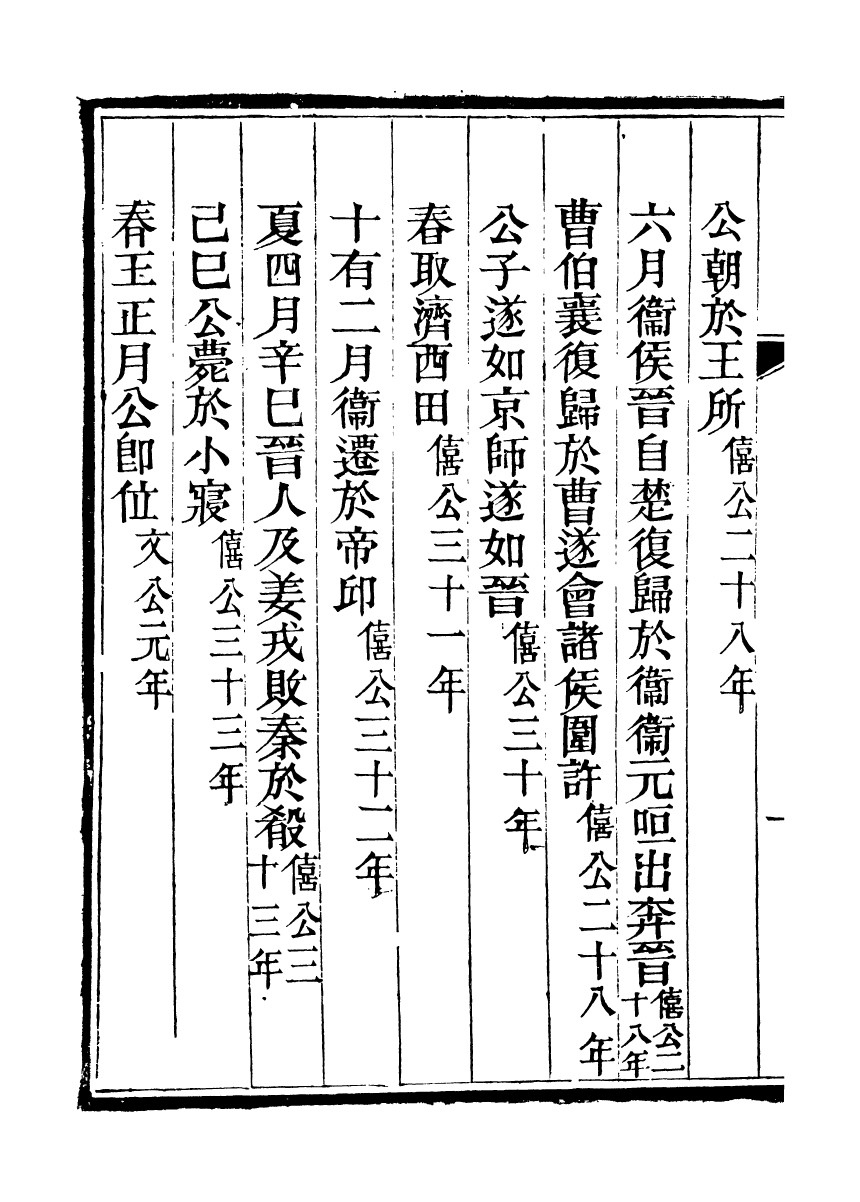 公朝於王所僖公二十八年
六月衞侯晉自楚復歸於衞衞元咺出奔晉僖公二十八年
曹伯襄復歸於曹遂會諸侯圍許僖公二十八年
公子遂如京師遂如晉僖公三十年
春取濟西田僖公三十一年
十有二月衞遷於帝邱僖公三十二年
夏四月辛巳晉人及姜戎敗秦於殽僖公三十三年
己巳公薨於小寢僖公三十三年
春王正月公卽位文公元年
一